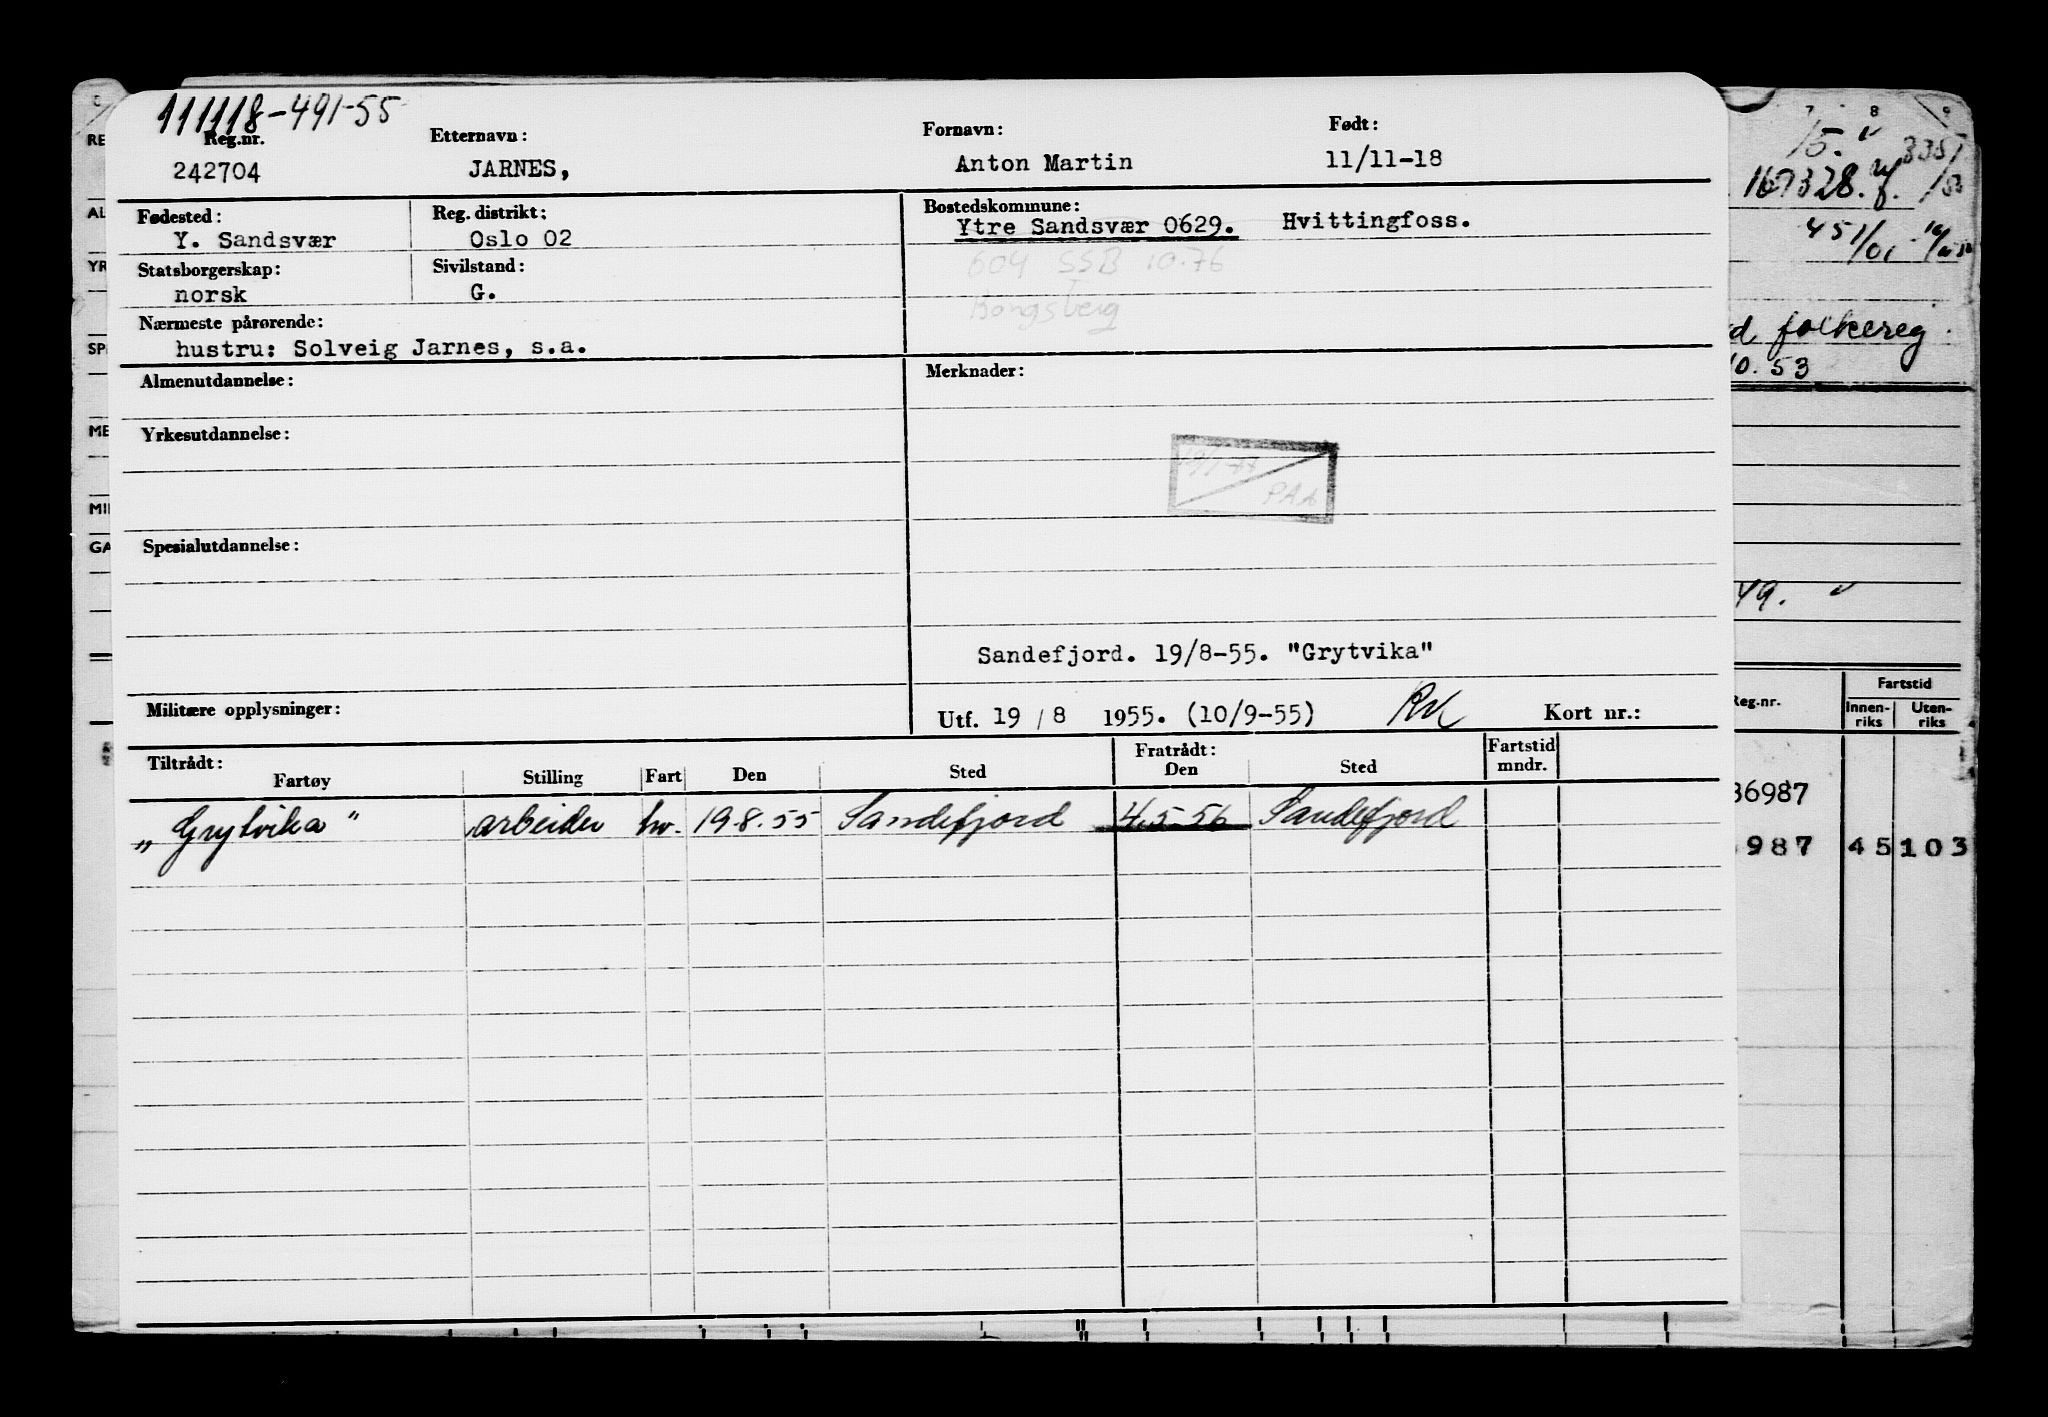 111118-491-55
Reg.nr. Etternavn: Fornavn: Født:
242704 JARNES, Anton Martin 11/11-18
Fødested: Reg. distrikt: Bostedskommune:
Y. Sandsvær Oslo 02 Ytre Sandsvær 0629. Hvittingfoss.
Statsborgerskap: Sivilstand: 604 SSB 10.76
norsk G. Kongsberg
Nærmeste pårørende:
hustru: Solveig Jarnes, s.a.
Almenutdannelse: Merknader:
Yrkesutdannelse:
PAA
Spesialutdannelse:
Sandefjord. 19/8-55. "Grytvika"
Militære opplysninger: Utf. 19 / 8 1955. (10/9-55) Kort nr.:
Tiltrådt: Fratrådt: Fartstid
Fartøy Stilling Fart Den Sted Den Sted mndr.
„Grytvika" arbeider hv. 19.8.55 Sandefjord 4.5-56 Sandefjord
RE
AL
YR
SP
ME
MI
GA
7 8 9
15.
167328.
451/01
folkereg.
10.53
49.
Reg.nr. Fartstid
Innen-riks Uten-riks
36987
987 45 103